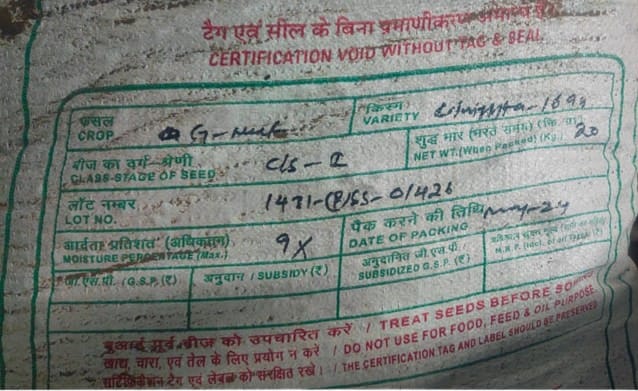 टैग एवं सील के बिना प्रमाणीकरण
CERTIFICATION VOID WITHOUT TAG & SEAL
फसल
CROP G-Nut
किस्म
VARIETY 1699
बीज का वर्ग-श्रेणी
CLASS-STAGE OF SEED C/S-I
शुद्ध भार (भरते समय) (कि. ग्रा.)
NET WT. (When Packed) (Kg.) 20
लॉट नम्बर
LOT NO. 1431-(P)SS-01426
आर्द्रता प्रतिशत (अधिकतम)
MOISTURE PERCENTAGE (Max.) 9%
पैक करने की तिथि
DATE OF PACKING May-24
जी.एस.पी. (G.S.P.) (₹)
अनुदान / SUBSIDY (₹)
अनुदानित जी.एस.पी.
SUBSIDIZED G.S.P. (₹)
M.R.P. (Incl. of all Taxes) (₹)
बुआई पूर्व बीज को उपचारित करें / TREAT SEEDS BEFORE
खाद्य, चारा, एवं तेल के लिए प्रयोग न करें / DO NOT USE FOR FOOD, FEED & OIL PURPOSE
सर्टिफिकेशन टैग एवं लेबल को संरक्षित रखें / THE CERTIFICATION TAG AND LABEL SHOULD BE PRESERVED